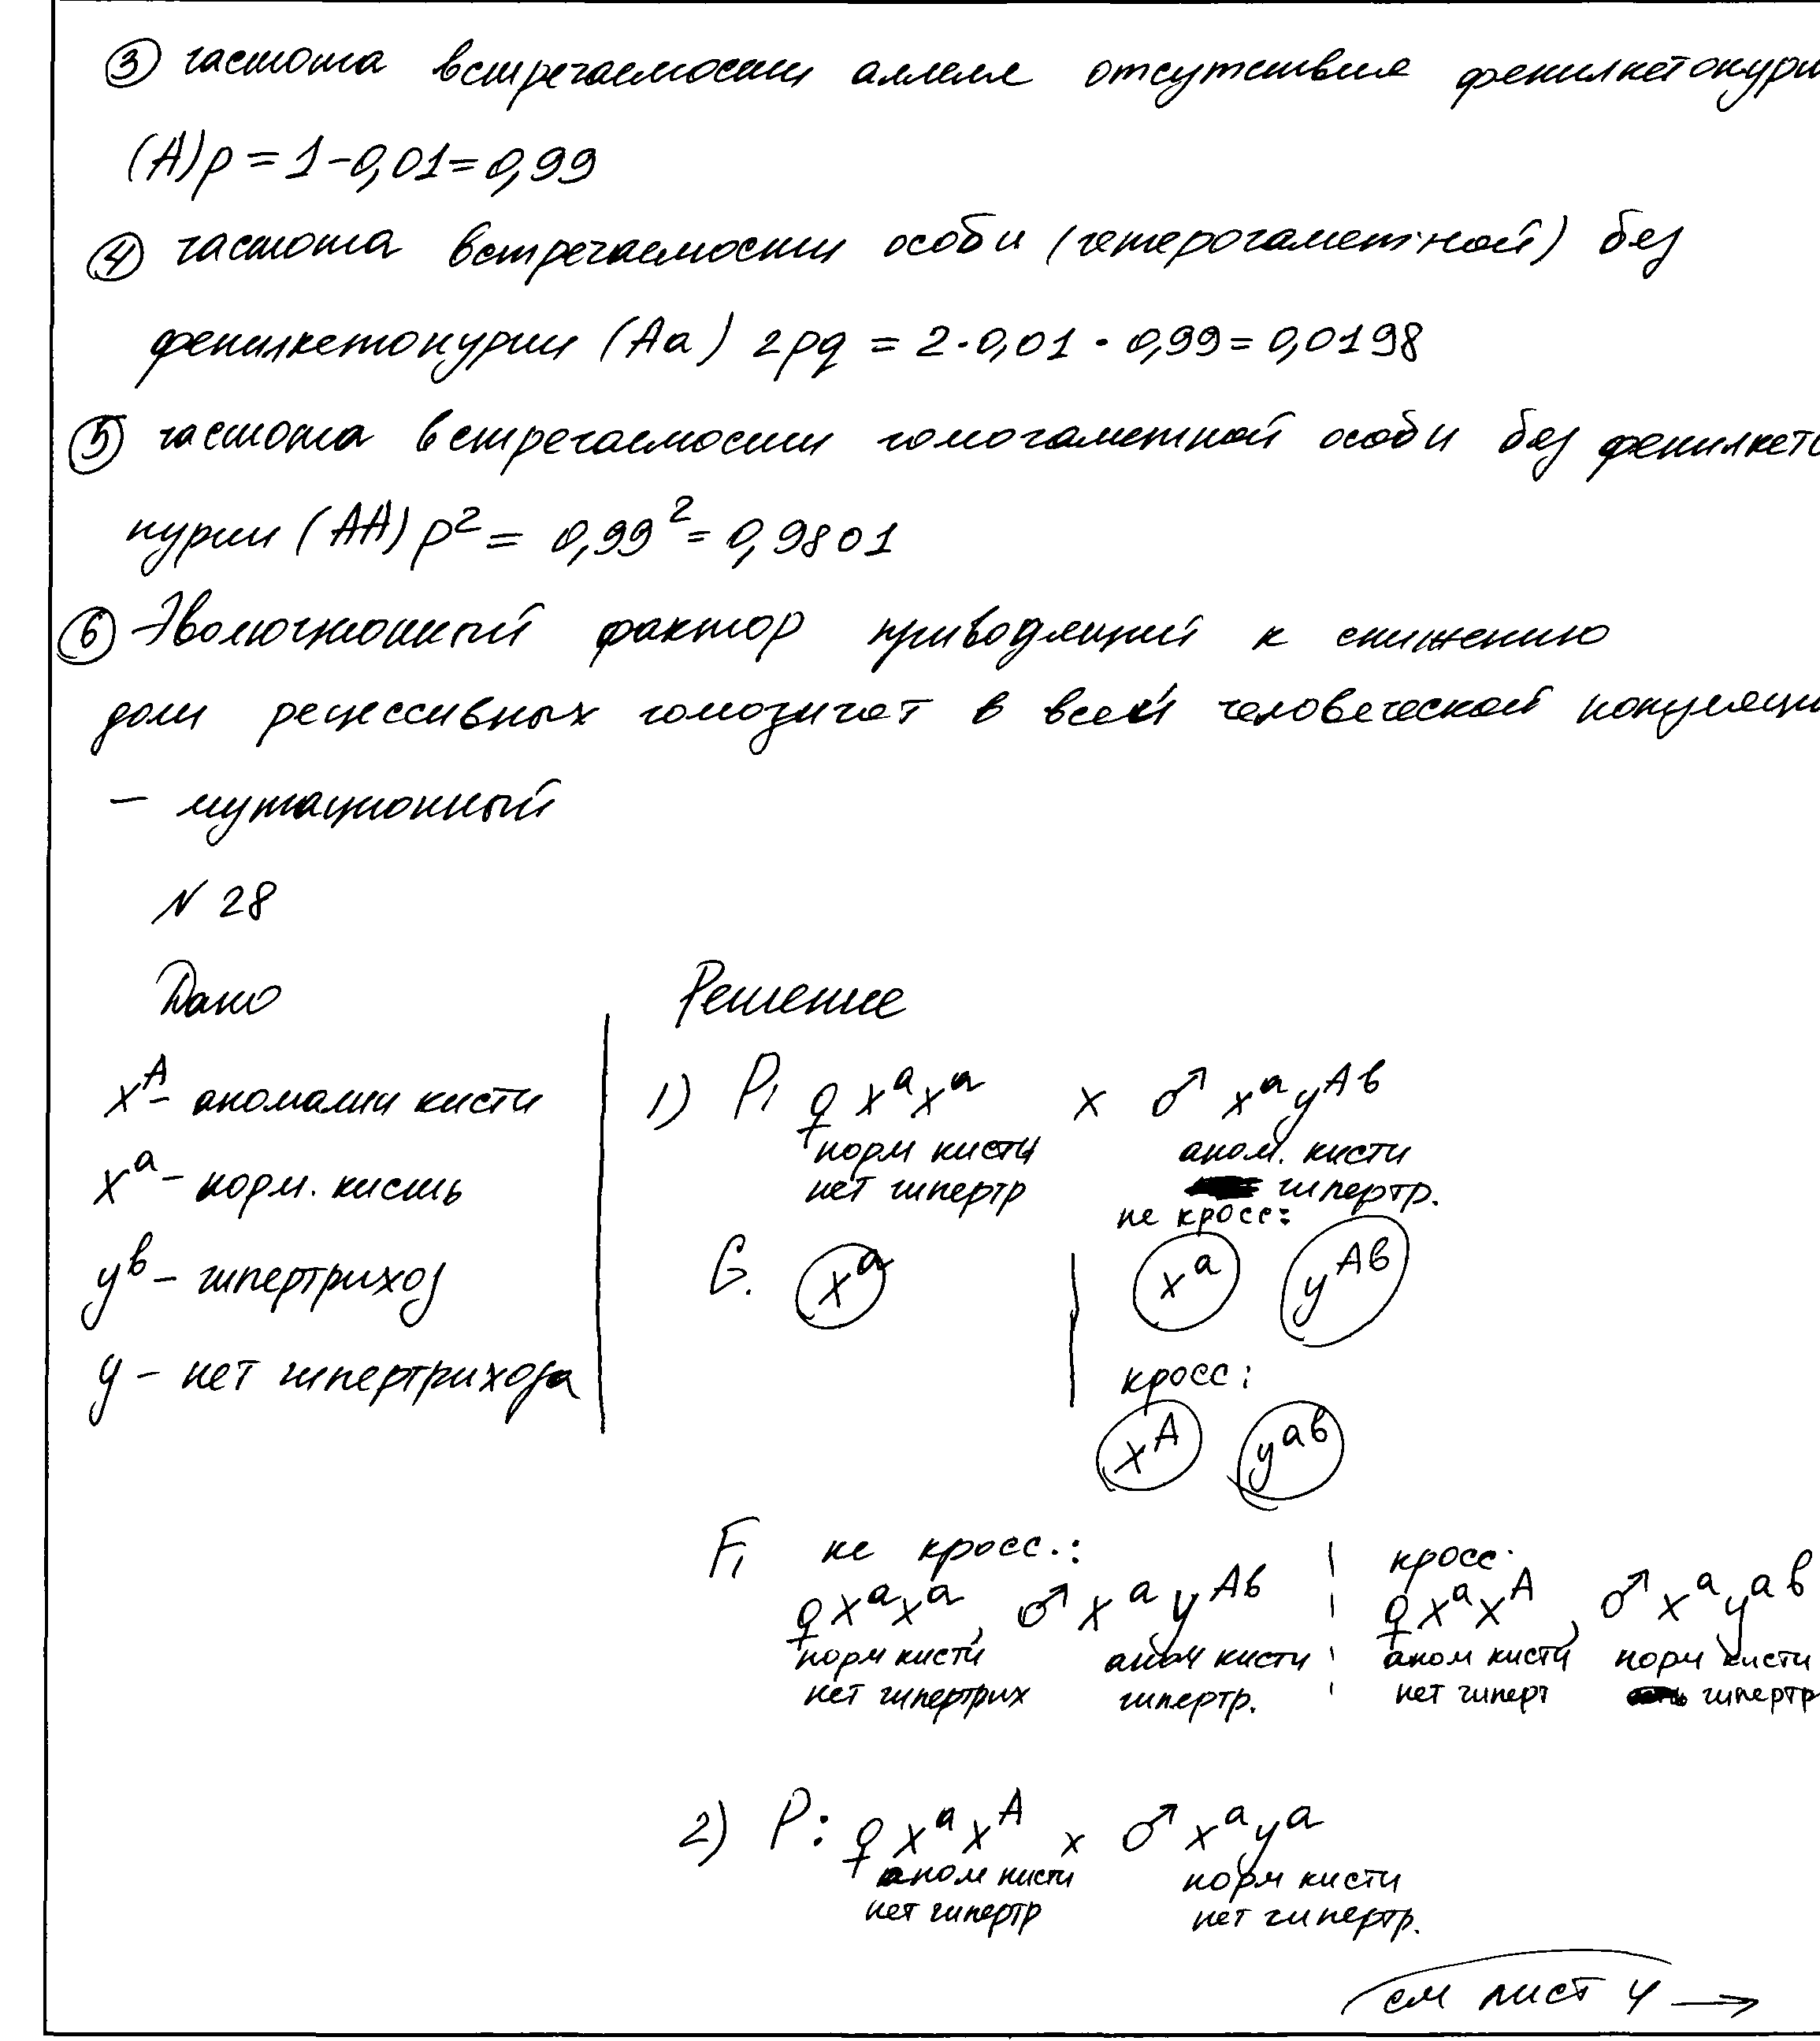 ③ частота встречаемости аллеля отсутствия фенилкетонури
(А) p = 1 - 0,01 = 0,99
④ частота встречаемости особи (гетерогаметной) без
фенилкетонурии (Аа) 2pq = 2·0,01·0,99 = 0,0198
⑤ частота встречаемости гомогаметной особи без фенилкето
нурии (АА) p² = 0,99² = 0,9801
⑥ Эволюционный фактор приводящий к снижению
доли рецессивных гомозигот в всей человеческой популяци
– мутационный
N 28
Дано Решение
x^A – аномалии кисти
x^a – норм. кисть
y^b – гипертрихоз
y – нет гипертрихоза
1) P₁ ♀ x^a x^a × ♂ x^a y^Ab
норм кисти аном. кисти
нет гипертр гипертр.
не кросс:
G. x^a | x^a y^Ab
кросс:
x^A y^ab
F₁ не кросс.: кросс.
♀ x^a x^a, ♂ x^a y^Ab ♀ x^a x^A, ♂ x^a y^ab
норм кисти аном кисти аном кисти норм кисти
нет гипертрих гипертр. нет гиперт гипертр
2) P: ♀ x^a x^A × ♂ x^a y^a
аном кисти норм кисти
нет гипертр нет гипертр.
см лист 4 →